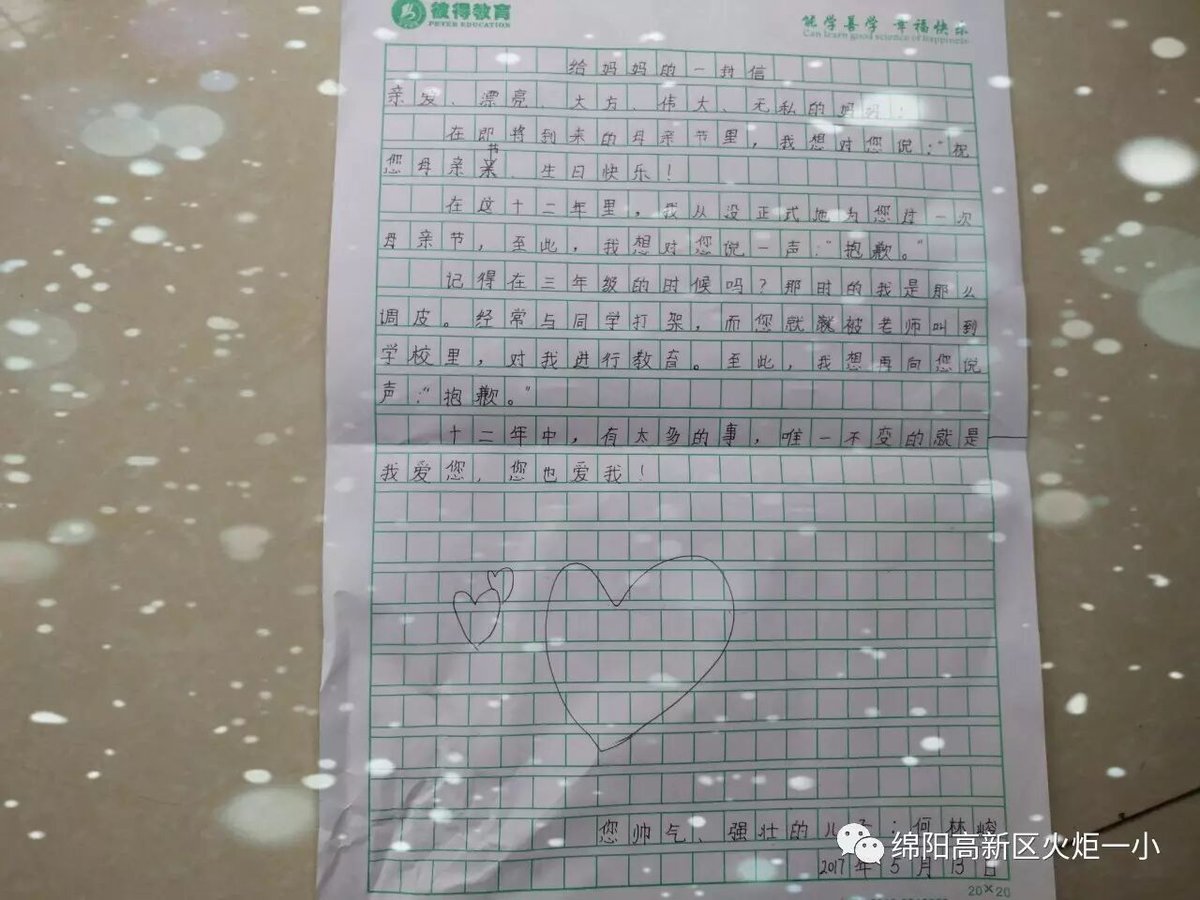 彼得教育
PETER EDUCATION
能学善学 幸福快乐
Can learn good science of happiness
给妈妈的一封信
亲爱、漂亮、大方、伟大、无私的妈妈：
在即将到来的母亲节里，我想对您说：“祝
您母亲节、生日快乐！
在这十二年里，我从没正式地为您过一次
母亲节，至此，我想对您说一声：“抱歉。”
记得在三年级的时候吗？那时的我是那么
调皮。经常与同学打架，而您就被老师叫到
学校里，对我进行教育。至此，我想再向您说
声：“抱歉。”
十二年中，有太多的事，唯一不变的就是
我爱您，您也爱我！
您帅气、强壮的儿子：何林峻
2017年5月13日
绵阳高新区火炬一小
20×20